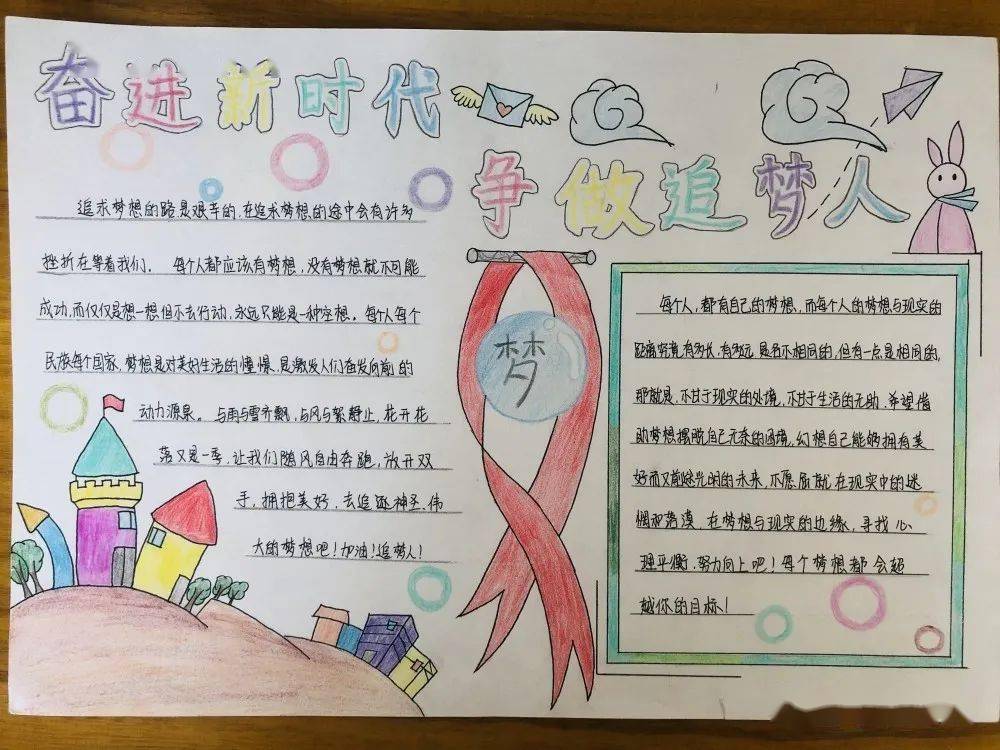 奋进新时代
争做追梦人
追求梦想的路是艰辛的，在追求梦想的途中会有许多
挫折在等着我们。 每个人都应该有梦想，没有梦想就不可能
成功，而仅仅是想一想但不去行动，永远只能是一种空想。每个人每个
民族每个国家，梦想是对美好生活的憧憬，是激发人们奋发向前的
动力源泉。与雨与雪齐飘，与风与絮静止，花开花
落又是一季，让我们随风自由奔跑，放开双
手，拥抱美好，去追逐神圣、伟
大的梦想吧！加油！追梦人！
梦
每个人，都有自己的梦想，而每个人的梦想与现实的
距离究竟有多长，有多远，是各不相同的，但有一点是相同的，
那就是，不甘于现实的处境，不甘于生活的无助，希望借
助梦想摆脱自己无奈的困境，幻想自己能够拥有美
好而又前途光明的未来，不愿屈就在现实中的迷
惘和落漠，在梦想与现实的边缘，寻找心
理平衡，努力向上吧！每个梦想都会超
越你的目标！